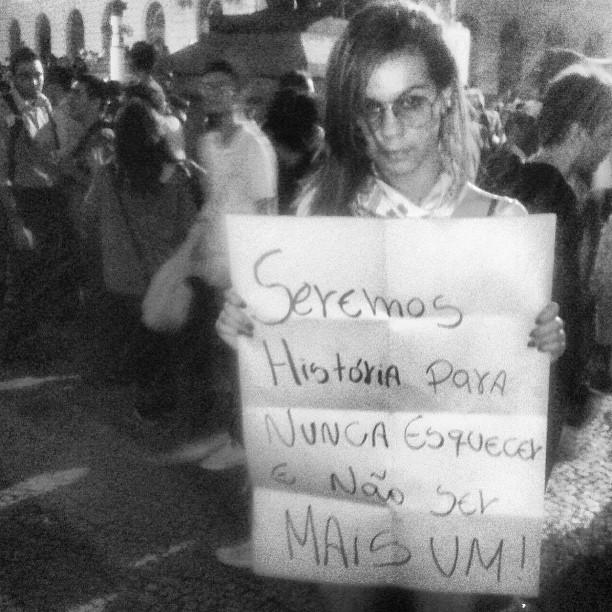 Seremos
História Para
Nunca Esquecer
e Não Ser
MAIS UM!